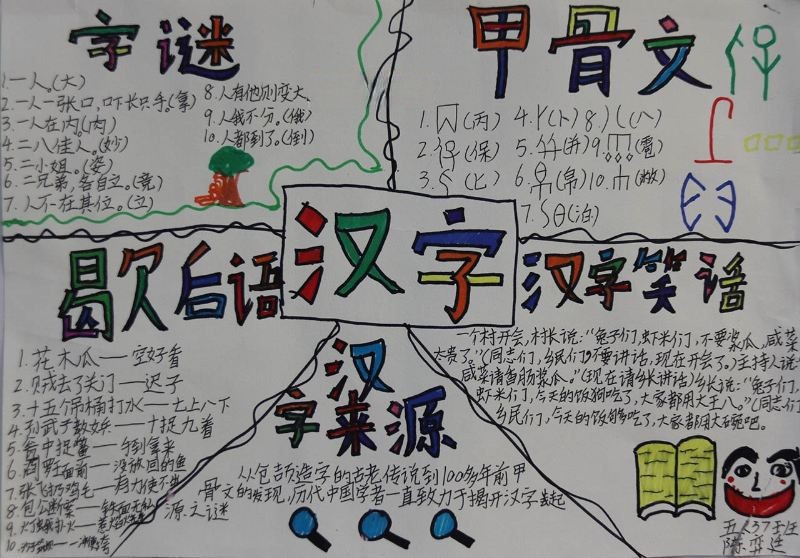 字谜
1.一人。(大)
2.一人一张口,口下长只手。(拿)
3.一人在内。(肉)
4.二八佳人。(妙)
5.二小姐。(姿)
6.二兄弟,各自立。(竞)
7.人不在其位。(立)
8.人有他则变大
9.人我不分。(俄)
10.人都到了。(倒)
甲骨文
1.(丙)
2.(保)
3.(匕)
4.(卜)
5.(并)
6.(帛)
7.(泊)
8.(八)
9.(雹)
10.
汉字
歇后语
1.花木瓜——空好看
2.贼去了关门——迟了
3.十五个吊桶打水——七上八下
4.孙武子教女兵——十捉九着
5.瓮中捉鳖——手到拿来
6.面前——没放回的鱼
7.张飞扔鸡毛——有力使不
8.包公断案——铁面无私
9.灯蛾扑火——惹焰
10.
汉字来源
从包颉造字的古老传说到100多年前甲
骨文的发现,历代中国学者一直致力于揭开汉字起
源之谜
汉字笑话
一个村开会,村长说:“兔子们,虾米们,不要浆瓜,咸菜
太贵了。”(同志们,乡民们,不要讲话,现在开会了。)主持人说:
咸菜请香肠浆瓜。”(现在请乡长讲话)乡长说:“兔子们,
虾米们,今天的饭狗吃了,大家都用大王八。”(同志们
乡民们,今天的饭够吃了,大家都用大碗吧。
五(3)班
陈奕廷